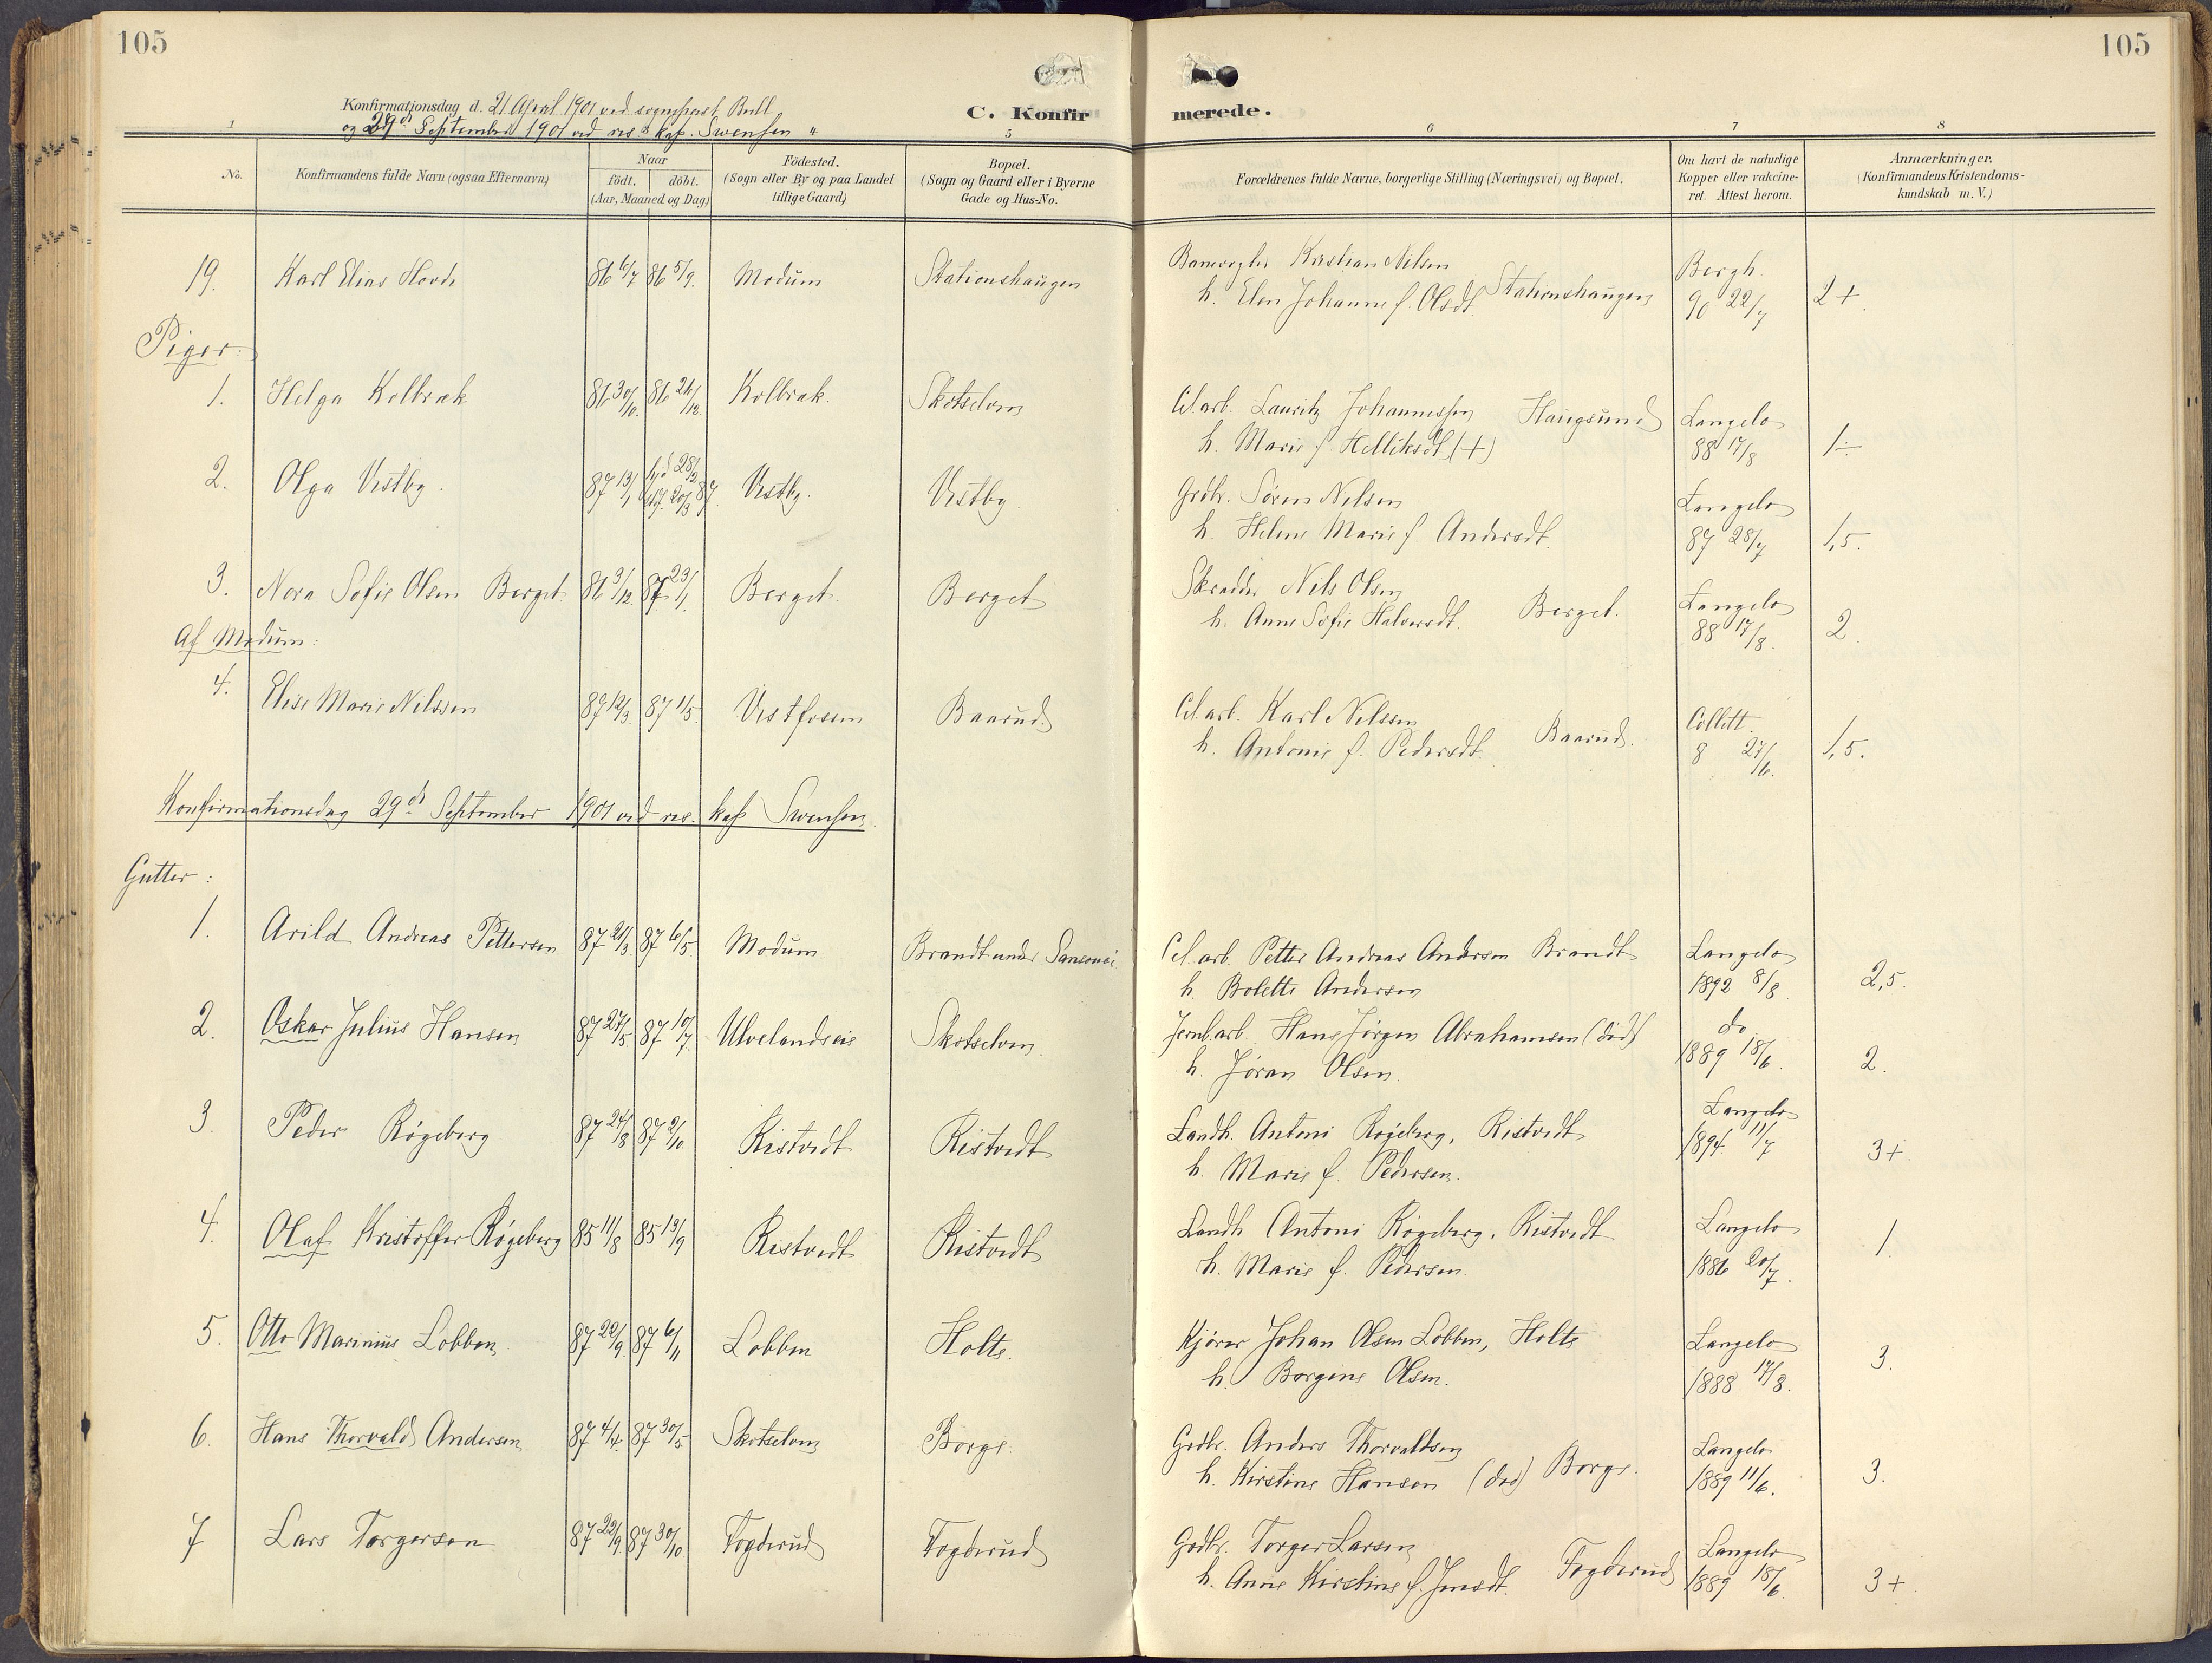 105
105
Konfirmationsdag d. 21 April 1901 ved sogneprest Bull
og 29de September 1901 ved res. kap. Swensen "
C. Konfirmerede.
1
5
6
7
8
No.
Konfirmandens fulde Navn (ogsaa Efternavn)
Naar
födt. döbt.
(Aar, Maaned og Dag)
Födested.
(Sogn eller By og paa Landet
tillige Gaard)
Bopæl.
(Sogn og Gaard eller i Byerne
Gade og Hus-No.
Forældrenes fulde Navne, borgerlige Stilling (Næringsvei) og Bopæl.
Om havt de naturlige
Kopper eller vakcine-
ret. Attest herom.
Anmærkninger.
(Konfirmandens Kristendoms-
kundskab m. V.)
19. Karl Elias Hovde 86 6/7 86 5/9. Modum Stationshaugen Banevogter Kristian Nilsen Bergh.
h. Elen Johanne f. Olsdt. Stationshaugen 90 22/7 2+.
Piger:
1. Helga Kolbræk 86 30/10. 86 26/12. Kolbræk. Skotselven Cel.arb. Lauritz Johannessen Haugsund Langelo
h. Marie f. Helliksdt (+) 88 17/8 1÷
2. Olga Vestby. 87 13/1 hjd 28/2 20/3 87. Vestby. Vestby. Grdbr. Søren Nilsen Langelo
h. Helene Marie f. Andersdt. 87 28/7 1,5.
3. Nora Sofie Olsen Berget. 86 3/12. 87 23/1. Berget. Berget Skrædder Nils Olsen Berget. Langelo
h. Anne Sofie Halvorsdt. 88 17/8. 2.
Af Modum:
4. Elise Marie Nilssen 87 12/3. 87 1/5. Vestfossen Baarud. Cel.arb. Karl Nilssen Baarud. Collett.
h. Antonie f. Pedersdt. 8 27/6. 1,5.
Konfirmationsdag 29de September 1901 ved res. kap Swensen.
Gutter:
1. Arild Andreas Pettersen 87 21/3. 87 6/5. Modum Brandt under Cel. arb. Petter Andreas Andersen Brandt Langelo
h. Bolette Andersen 1892 8/8. 2,5.
2. Oskar Julius Hansen 87 27/5. 87 10/7. Ulvelandseie Skotselven. Jernb.arb. Hans Jørgen Abrahamsen (død) do
h. Jøran Olsen. 1889 18/6. 2.
3. Peder Røgeberg 87 24/8 87 2/10 Ristvedt Ristvedt Landh. Antoni Røgeberg, Ristvedt Langelo
h. Marie f. Pedersen. 1894 11/7 3+.
4. Olaf Kristoffer Røgeberg 85 11/8 85 13/9 Ristvedt Ristvedt Landh Antoni Røgeberg, Ristvedt Langelo
h. Marie f. Pedersen. 1886 20/7. 1.
5. Otto Marinius Lobben. 87 22/9. 87 6/11 Lobben Holte. Kjører Johan Olsen Lobben, Holte Langelo
h. Borgine Olsen. 1888 17/8. 3.
6. Hans Thorvald Andersen 87 4/4. 87 30/5 Skotselven Borge. Grdbr. Anders Thorvaldsen Borge. Langelo
h. Kirstine Hansen (død) 1889 11/6. 3.
7 Lars Torgersen 87 22/9. 87 30/10. Fogderud Fogderud Grdbr. Torger Larsen Fogderud Langelo
h. Anne Kirstine f. Jensdt. 1889 18/6. 3+.